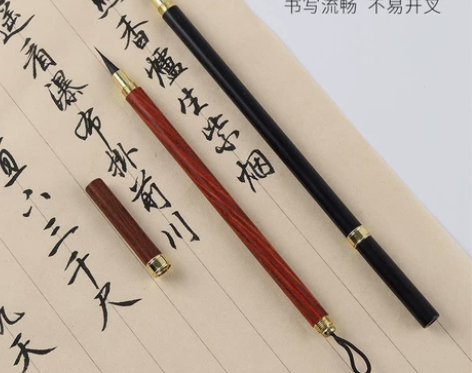 书写流畅 不易开叉
照香爐生紫烟
遥看瀑布掛前川
直下三千尺
九天